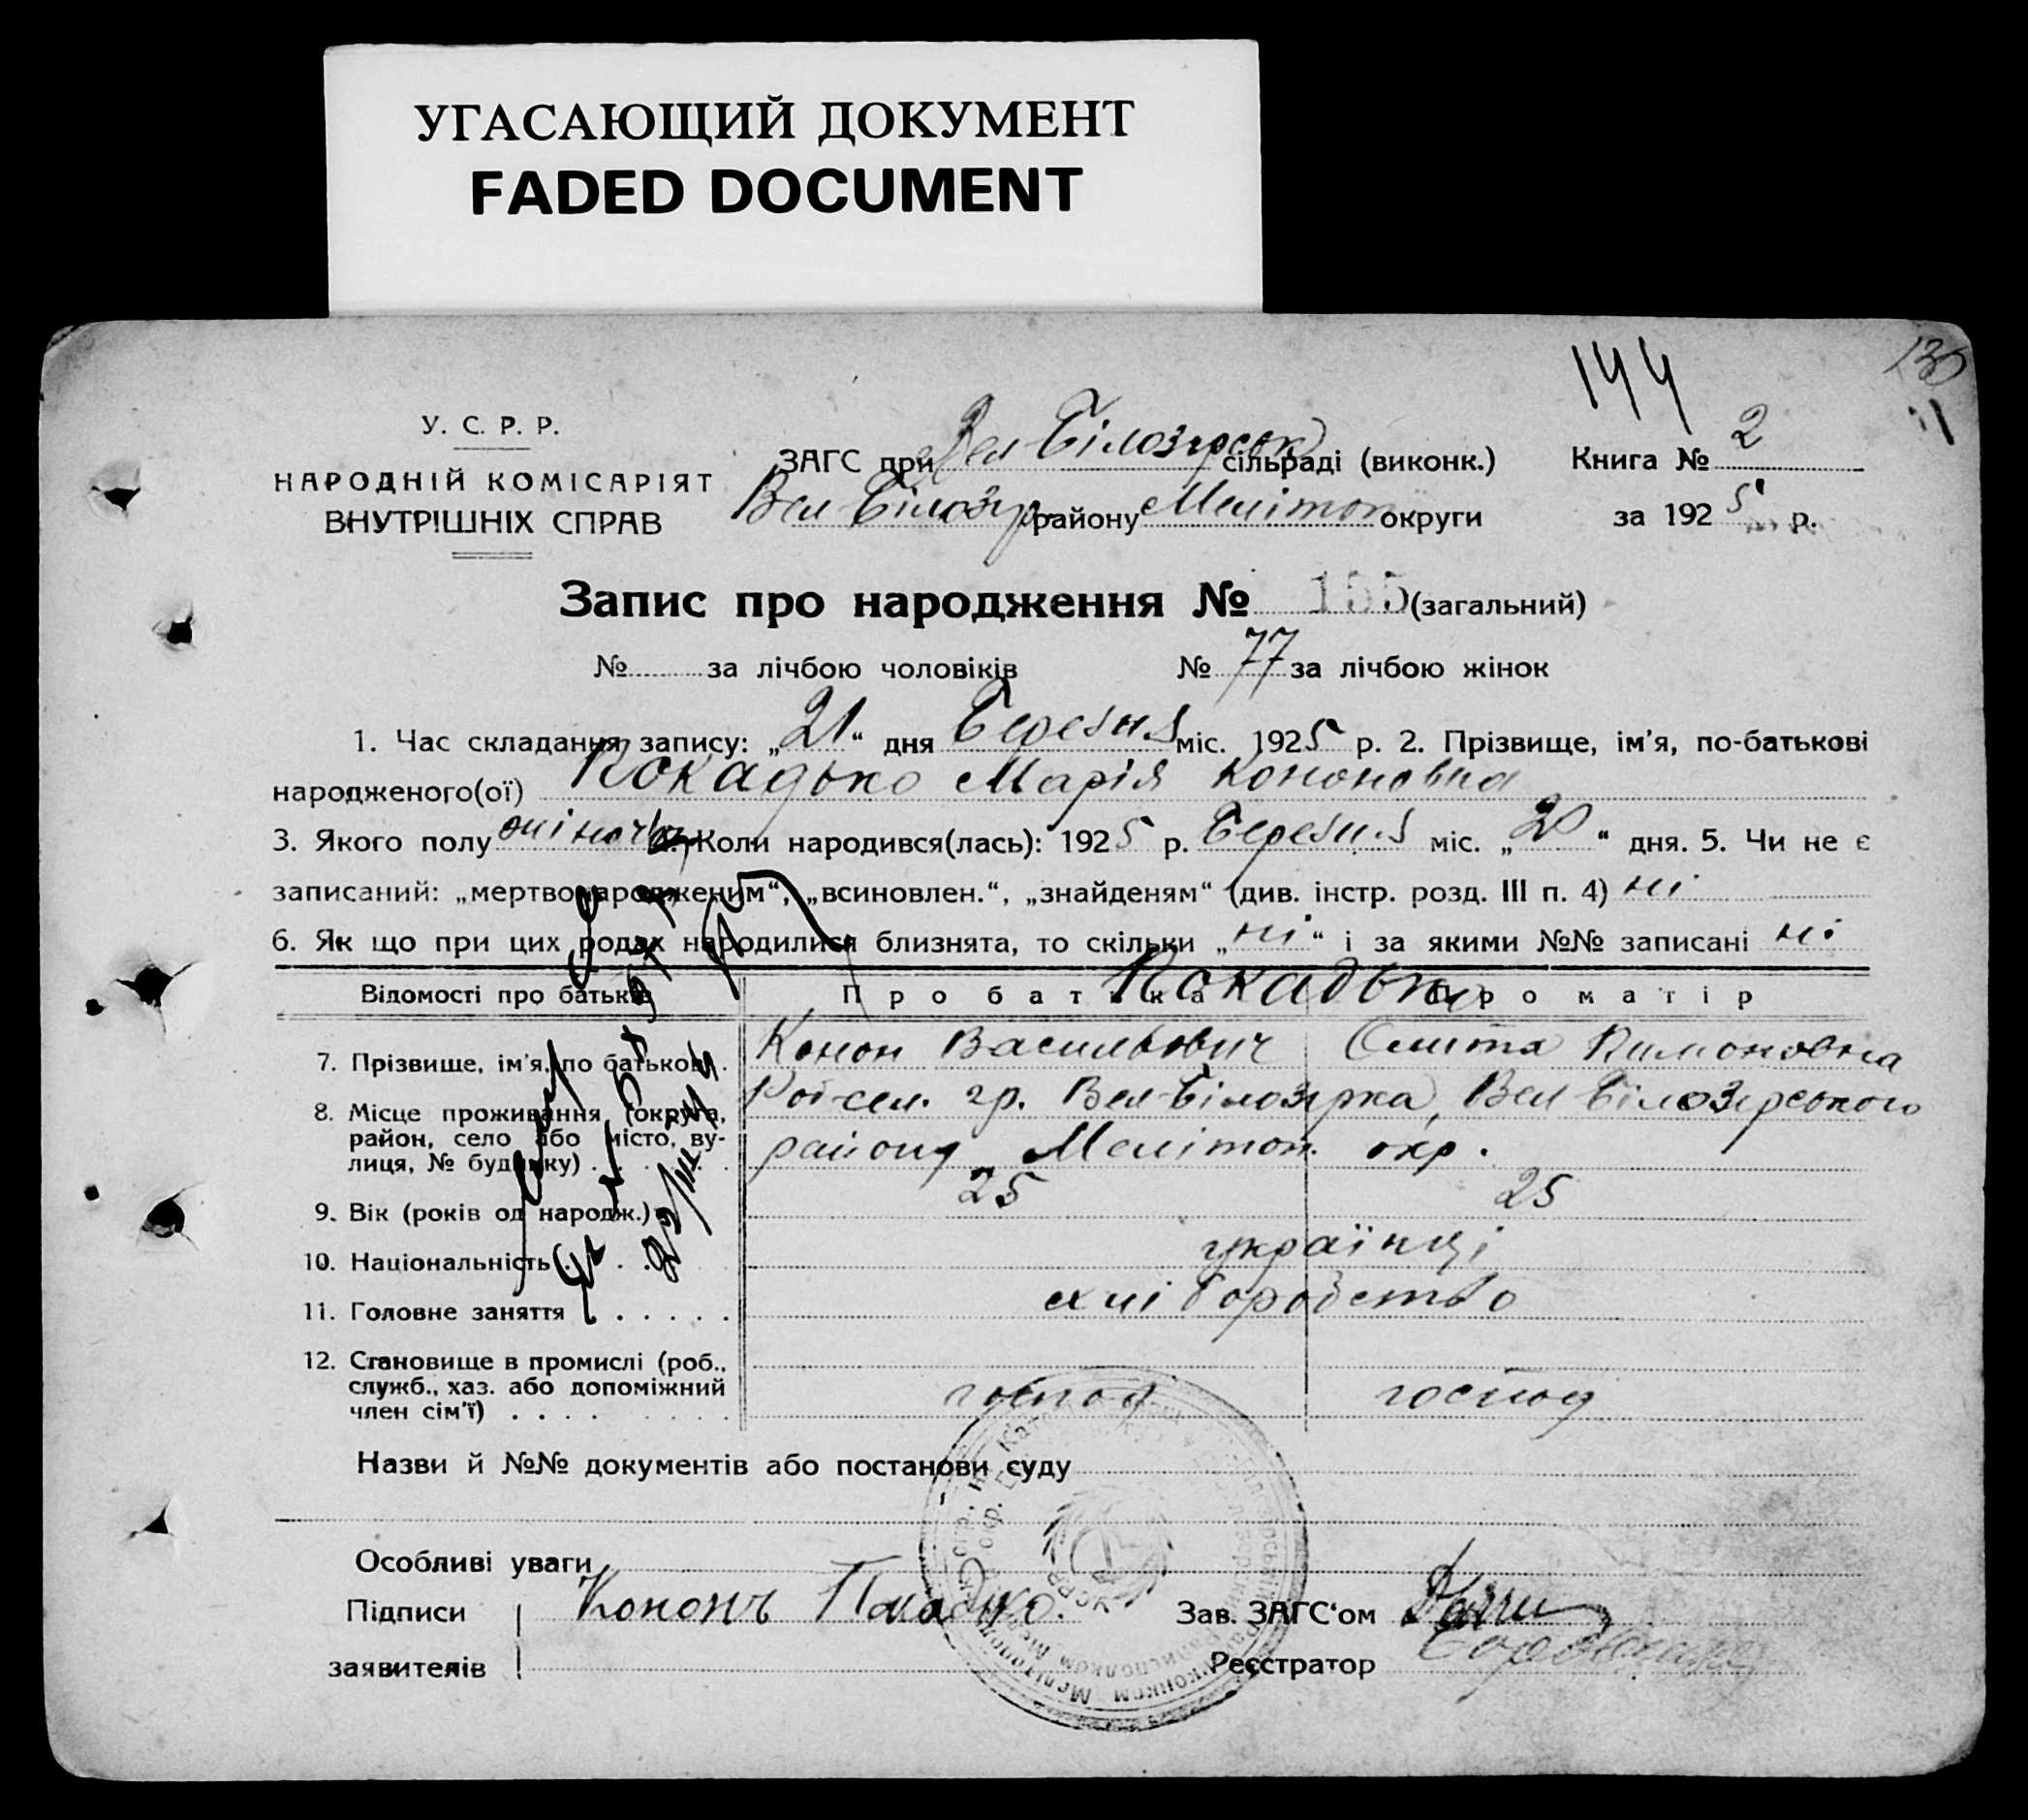 УГАСАЮЩИЙ ДОКУМЕНТ
FADED DOCUMENT
144
2
У. С. Р. Р.
НАРОДНІЙ КОМІСАРІЯТ
ВНУТРІШНІХ СПРАВ
ЗАГС при Вел Білозірськ сільраді (виконк.)
Вел Білозір району Мелітоп округи
Книга № 2
за 1925 р.
Запис про народження № 155 (загальний)
№ за лічбою чоловіків № 77 за лічбою жінок
1. Час складання запису: „21“ дня Березня міс. 1925 р. 2. Прізвище, ім'я, по-батькові
народженого(ої) Покадько Марія Кононовна
3. Якого полу жіноч 4. Коли народився(лась): 1925 р. Березня міс. „20“ дня. 5. Чи не є
записаний: „мертвонародженим“, „всиновлен.“, „знайденям“ (див. інстр. розд. III п. 4) ні
6. Як що при цих родах народилися близнята, то скільки „ні“ і за якими №№ записані ні
Відомості про батьків Про батька Покадько Про матір
7. Прізвище, ім'я, по батькові. Конон Васильович
8. Місце проживання (округа, район, село або місто, вулиця, № будинку) гр. Вел-Білозірка, Вел Білозірського
району Мелітоп. окр.
9. Вік (років од народж.) 25 25
10. Національність українці
11. Головне заняття хліборобство
12. Становище в промислі (роб., служб., хаз. або допоміжний член сім'ї) господ господ
Назви й №№ документів або постанови суду
Особливі уваги
Підписи Кононъ
заявителів
Зав. ЗАГС'ом
Реєстратор